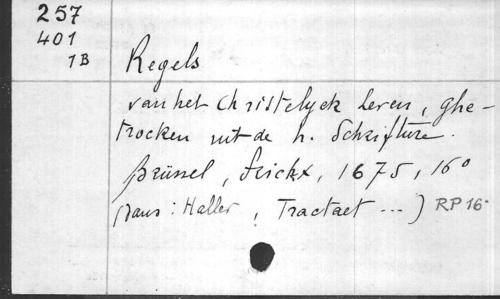 257
401
1B
Regels
van het Christelyck Leven, ghe-
trocken uit de h. Schrifture.
Brüssel, Frickx, 1675, 16°
(aus: Haller, Tractaet ...) RP 16°